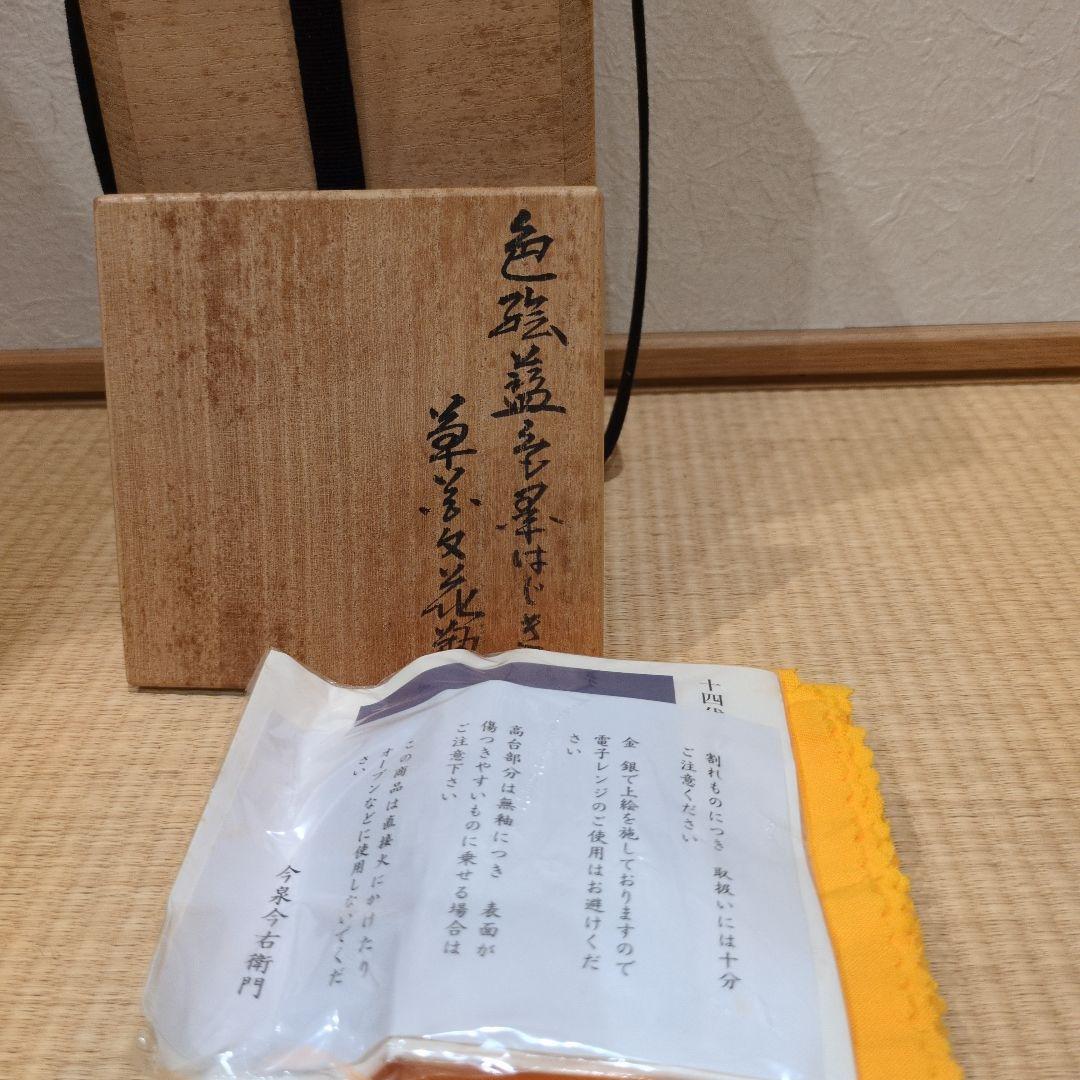 色絵藍色墨はじき
草花文花瓶
十四代
割れものにつき 取扱いには十分
ご注意ください
金 銀で上絵を施しておりますので
電子レンジのご使用はお避けくだ
さい
高台部分は無釉につき 表面が
傷つきやすいものに乗せる場合は
ご注意下さい
この商品は直接火にかけたり
オーブンなどに使用しないでくだ
さい
今泉今右衛門